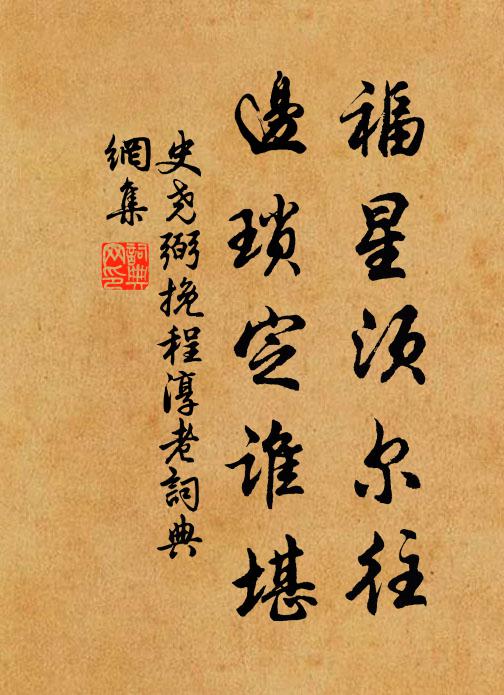 福星須尔往
邊瑣定誰堪
史尧弼挽程淳老詞典
網集
詞典
网印